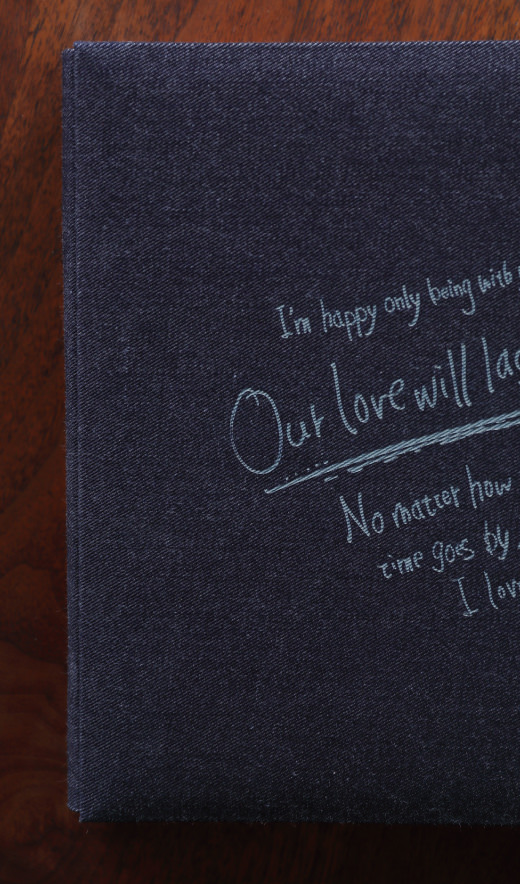 I'm happy only being with
Our love will las
No matter how
time goes by
I lov